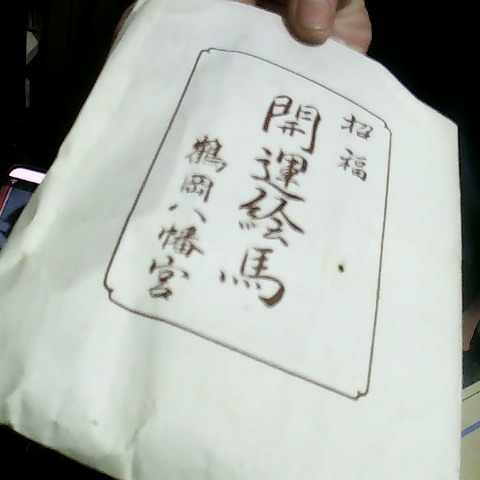 招福
開運絵馬
鶴岡八幡宮